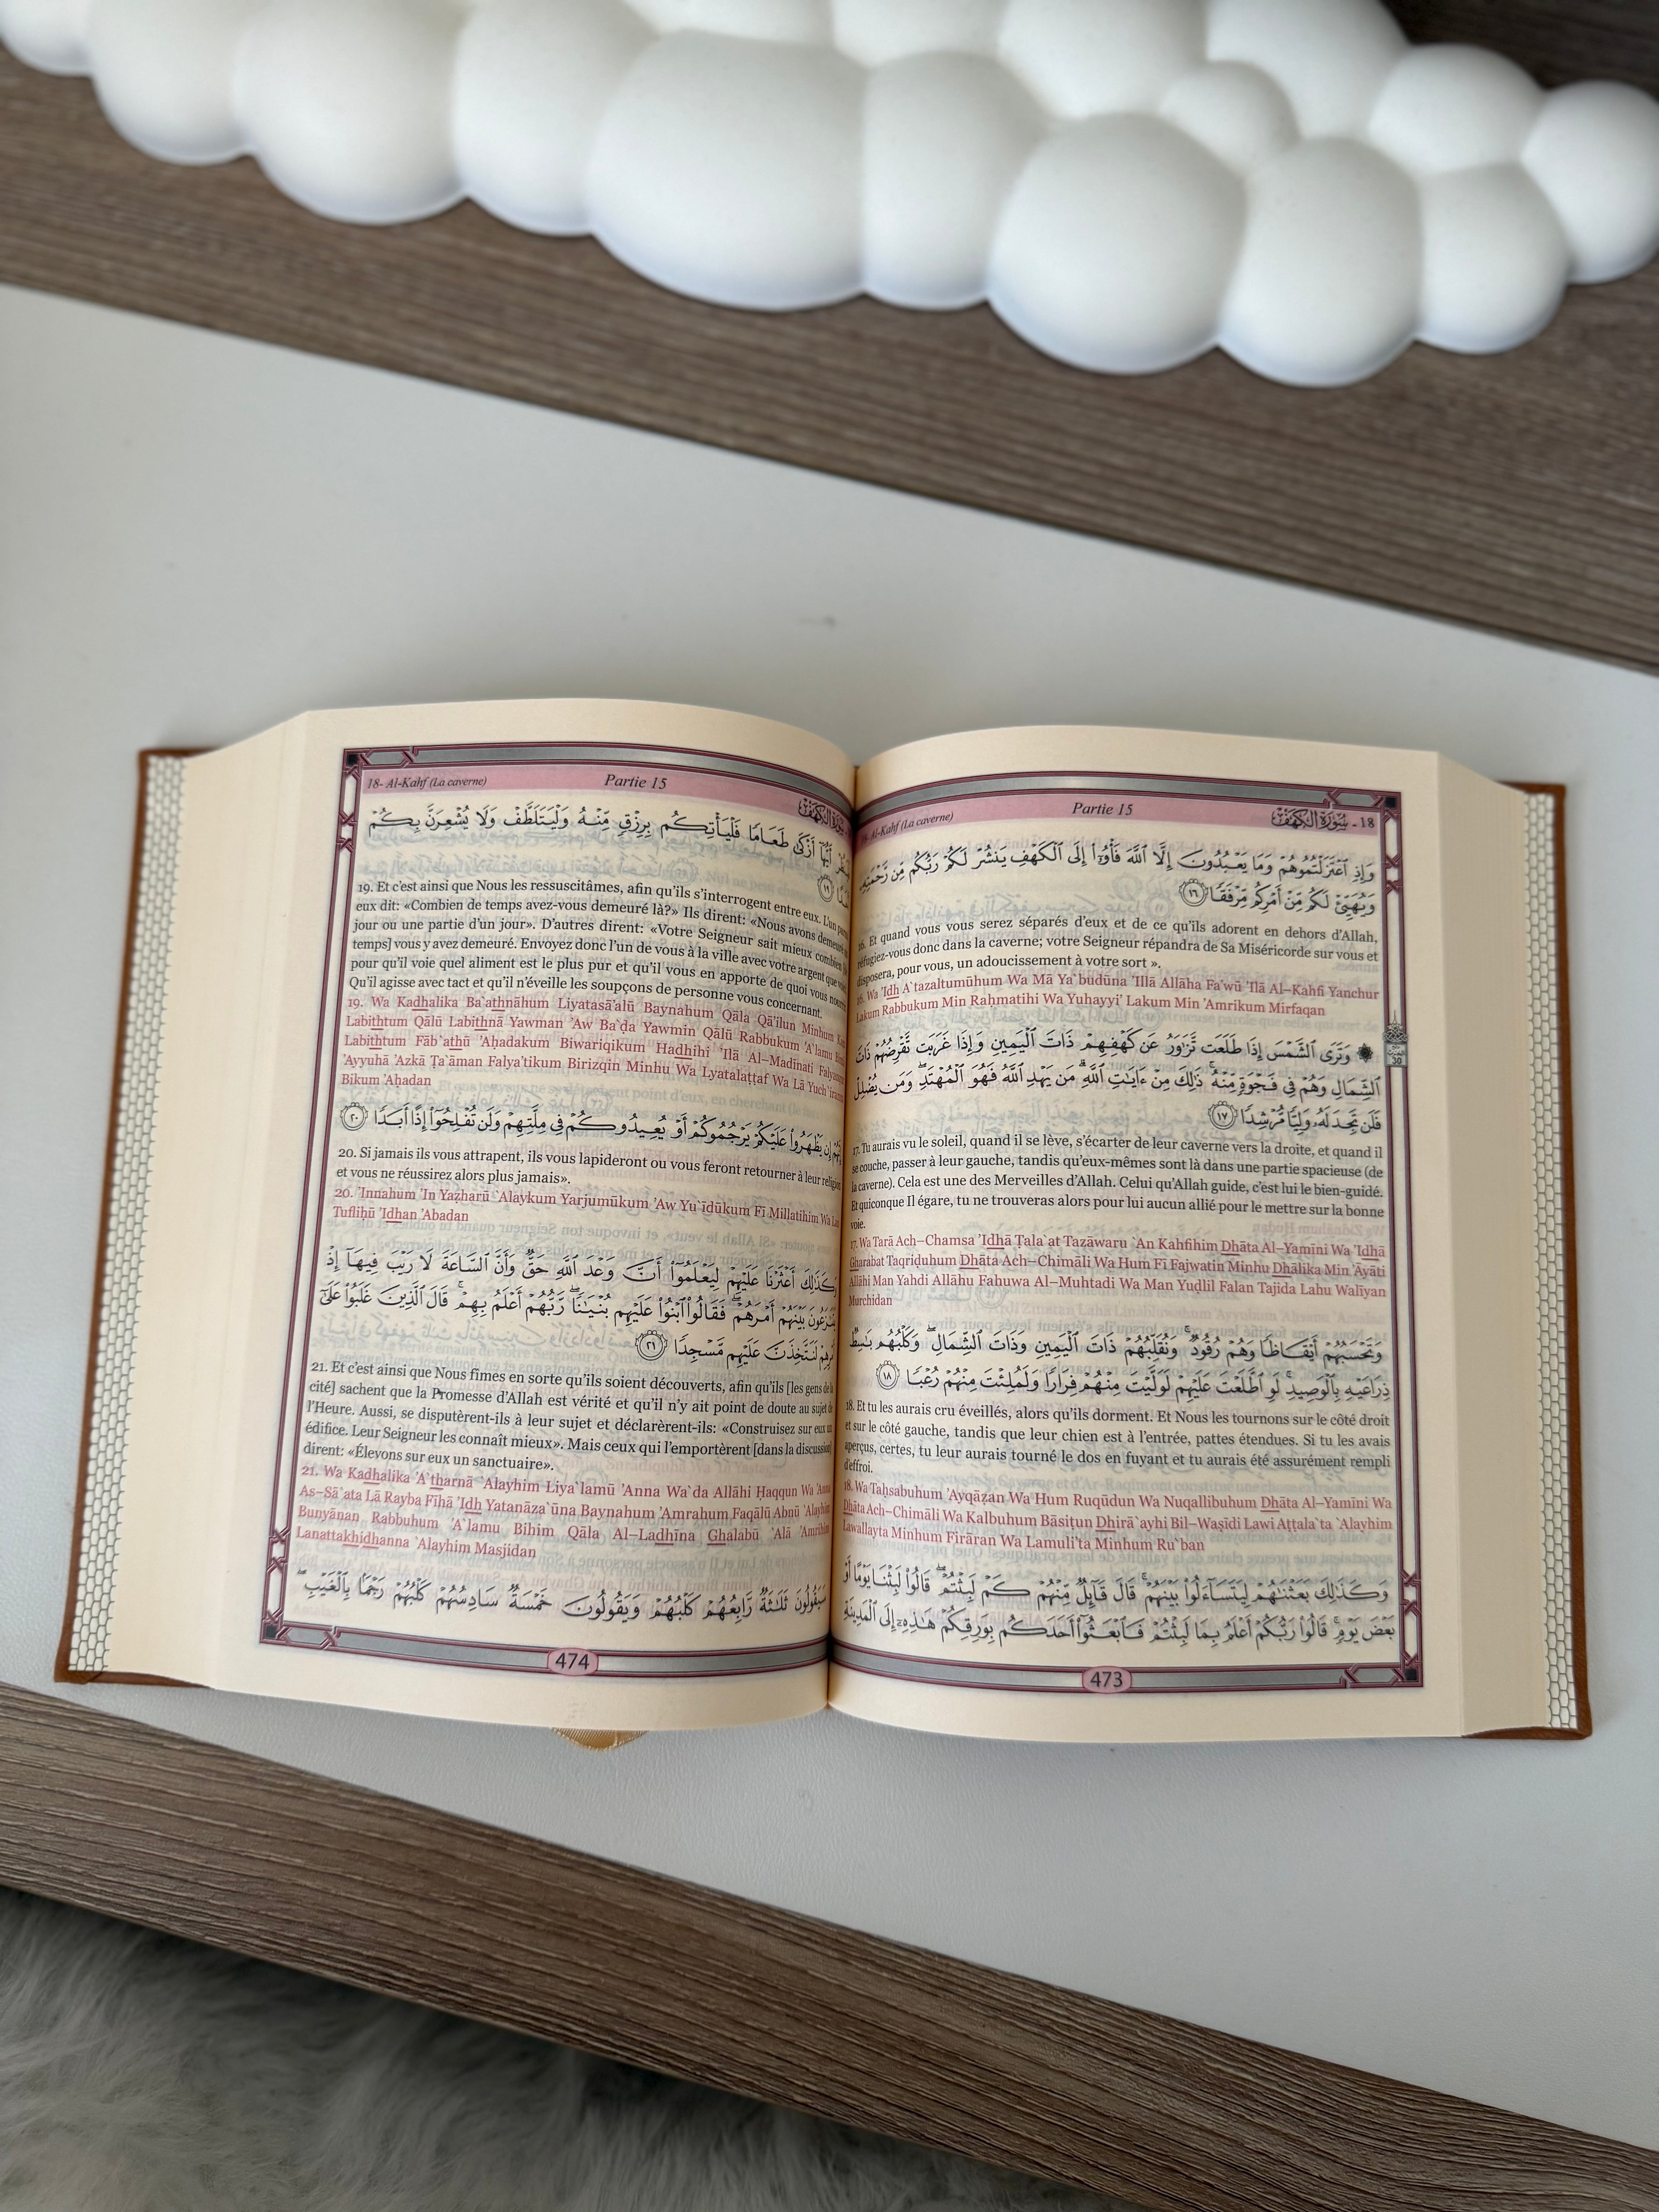 18- سُورَةُ الكَهْفِ
Partie 15
Al-Kahf (La caverne)
وَإِذِ ٱعْتَزَلْتُمُوهُمْ وَمَا يَعْبُدُونَ إِلَّا ٱللَّهَ فَأْوُۥٓا۟ إِلَى ٱلْكَهْفِ يَنشُرْ لَكُمْ رَبُّكُم مِّن رَّحْمَتِهِۦ
وَيُهَيِّئْ لَكُم مِّنْ أَمْرِكُم مِّرْفَقًا ١٦
16. Et quand vous vous serez séparés d’eux et de ce qu’ils adorent en dehors d’Allah,
réfugiez-vous donc dans la caverne; votre Seigneur répandra de Sa Miséricorde sur vous et
disposera, pour vous, un adoucissement à votre sort ».
16. Wa 'Idh A`tazaltumūhum Wa Mā Ya`budūna 'Illā Allāha Fa'wū 'Ilā Al–Kahfi Yanchur
Lakum Rabbukum Min Raḥmatihi Wa Yuhayyi' Lakum Min 'Amrikum Mirfaqan
۞ وَتَرَى ٱلشَّمْسَ إِذَا طَلَعَت تَّزَٰوَرُ عَن كَهْفِهِمْ ذَاتَ ٱلْيَمِينِ وَإِذَا غَرَبَت تَّقْرِضُهُمْ ذَاتَ
ٱلشِّمَالِ وَهُمْ فِى فَجْوَةٍ مِّنْهُ ۚ ذَٰلِكَ مِنْ ءَايَٰتِ ٱللَّهِ ۗ مَن يَهْدِ ٱللَّهُ فَهُوَ ٱلْمُهْتَدِ ۖ وَمَن يُضْلِلْ
فَلَن تَجِدَ لَهُۥ وَلِيًّا مُّرْشِدًا ١٧
17. Tu aurais vu le soleil, quand il se lève, s’écarter de leur caverne vers la droite, et quand il
se couche, passer à leur gauche, tandis qu’eux-mêmes sont là dans une partie spacieuse (de
la caverne). Cela est une des Merveilles d’Allah. Celui qu’Allah guide, c’est lui le bien-guidé.
Et quiconque Il égare, tu ne trouveras alors pour lui aucun allié pour le mettre sur la bonne
voie.
17. Wa Tará Ach–Chamsa 'Idhā Ṭala`at Tazāwaru `An Kahfihim Dhāta Al–Yamīni Wa 'Idhā
Gharabat Taqriḍuhum Dhāta Ach–Chimāli Wa Hum Fī Fajwatin Minhu Dhālika Min 'Āyāti
Allāhi Man Yahdi Allāhu Fahuwa Al–Muhtadi Wa Man Yuḍlil Falan Tajida Lahu Walīyan
Murchidan
وَتَحْسَبُهُمْ أَيْقَاظًا وَهُمْ رُقُودٌ ۚ وَنُقَلِّبُهُمْ ذَاتَ ٱلْيَمِينِ وَذَاتَ ٱلشِّمَالِ ۖ وَكَلْبُهُم بَٰسِطٌ
ذِرَاعَيْهِ بِٱلْوَصِيدِ ۚ لَوِ ٱطَّلَعْتَ عَلَيْهِمْ لَوَلَّيْتَ مِنْهُمْ فِرَارًا وَلَمُلِئْتَ مِنْهُمْ رُعْبًا ١٨
18. Et tu les aurais cru éveillés, alors qu’ils dorment. Et Nous les tournons sur le côté droit
et sur le côté gauche, tandis que leur chien est à l’entrée, pattes étendues. Si tu les avais
aperçus, certes, tu leur aurais tourné le dos en fuyant et tu aurais été assurément rempli
d’effroi.
18. Wa Taḥsabuhum 'Ayqāẓan Wa Hum Ruqūdun Wa Nuqallibuhum Dhāta Al–Yamīni Wa
Dhāta Ach–Chimāli Wa Kalbuhum Bāsiṭun Dhirā`ayhi Bil–Waṣīdi Lawi Aṭṭala`ta `Alayhim
Lawallayta Minhum Firāran Wa Lamuli'ta Minhum Ru`ban
وَكَذَٰلِكَ بَعَثْنَٰهُمْ لِيَتَسَآءَلُوا۟ بَيْنَهُمْ ۚ قَالَ قَآئِلٌ مِّنْهُمْ كَمْ لَبِثْتُمْ ۖ قَالُوا۟ لَبِثْنَا يَوْمًا أَوْ
بَعْضَ يَوْمٍ ۚ قَالُوا۟ رَبُّكُمْ أَعْلَمُ بِمَا لَبِثْتُمْ فَٱبْعَثُوٓا۟ أَحَدَكُم بِوَرِقِكُمْ هَٰذِهِۦٓ إِلَى ٱلْمَدِينَةِ
473
30
18- Al-Kahf (La caverne)
Partie 15
سُورَةُ الكَهْفِ
أَيُّهَآ أَزْكَىٰ طَعَامًا فَلْيَأْتِكُم بِرِزْقٍ مِّنْهُ وَلْيَتَلَطَّفْ وَلَا يُشْعِرَنَّ بِكُمْ
١٩
19. Et c’est ainsi que Nous les ressuscitâmes, afin qu’ils s’interrogent entre eux. L’un
eux dit: «Combien de temps avez-vous demeuré là?» Ils dirent: «Nous avons demeuré
jour ou une partie d’un jour». D’autres dirent: «Votre Seigneur sait mieux combien
temps] vous y avez demeuré. Envoyez donc l’un de vous à la ville avec votre argent que
pour qu’il voie quel aliment est le plus pur et qu’il vous en apporte de quoi vous
Qu’il agisse avec tact et qu’il n’éveille les soupçons de personne vous concernant.
19. Wa Kadhalika Ba`athnāhum Liyatasā'alū Baynahum Qāla Qā'ilun Minhum
Labithtum Qālū Labithnā Yawman 'Aw Ba`ḍa Yawmin Qālū Rabbukum 'A`lamu
Labithtum Fāb`athū 'Aḥadakum Biwariqikum Hadhihi 'Ilá Al–Madīnati
'Ayyuhā 'Azká Ṭa`āman Falya'tikum Birizqin Minhu Wa Lyatalaṭṭaf Wa Lā
Bikum 'Aḥadan
إِن يَظْهَرُوا۟ عَلَيْكُمْ يَرْجُمُوكُمْ أَوْ يُعِيدُوكُمْ فِى مِلَّتِهِمْ وَلَن تُفْلِحُوٓا۟ إِذًا أَبَدًا ٢٠
20. Si jamais ils vous attrapent, ils vous lapideront ou vous feront retourner à leur religion
et vous ne réussirez alors plus jamais».
20. 'Innahum 'In Yaẓharū `Alaykum Yarjumūkum 'Aw Yu`īdūkum Fī Millatihim Wa Lan
Tufliḥū 'Idhan 'Abadan
وَكَذَٰلِكَ أَعْثَرْنَا عَلَيْهِمْ لِيَعْلَمُوٓا۟ أَنَّ وَعْدَ ٱللَّهِ حَقٌّ وَأَنَّ ٱلسَّاعَةَ لَا رَيْبَ فِيهَآ إِذْ
بَيْنَهُمْ أَمْرَهُمْ ۖ فَقَالُوا۟ ٱبْنُوا۟ عَلَيْهِم بُنْيَٰنًا ۖ رَّبُّهُمْ أَعْلَمُ بِهِمْ ۚ قَالَ ٱلَّذِينَ غَلَبُوا۟ عَلَىٰٓ
لَنَتَّخِذَنَّ عَلَيْهِم مَّسْجِدًا ٢١
21. Et c’est ainsi que Nous fimes en sorte qu’ils soient découverts, afin qu’ils [les gens de la
cité] sachent que la Promesse d’Allah est vérité et qu’il n’y ait point de doute au sujet de
l’Heure. Aussi, se disputèrent-ils à leur sujet et déclarèrent-ils: «Construisez sur eux un
édifice. Leur Seigneur les connaît mieux». Mais ceux qui l’emportèrent [dans la discussion]
dirent: «Élevons sur eux un sanctuaire».
21. Wa Kadhalika 'A`tharnā `Alayhim Liya`lamū 'Anna Wa`da Allāhi Ḥaqqun Wa 'Anna
As–Sā`ata Lā Rayba Fīhā 'Idh Yatanāza`ūna Baynahum 'Amrahum Faqālū Abnū `Alayhim
Bunyānan Rabbuhum 'A`lamu Bihim Qāla Al–Ladhīna Ghalabū `Alá 'Amrihim
Lanattakhidhanna `Alayhim Masjidan
سَيَقُولُونَ ثَلَٰثَةٌ رَّابِعُهُمْ كَلْبُهُمْ وَيَقُولُونَ خَمْسَةٌ سَادِسُهُمْ كَلْبُهُمْ رَجْمًۢا بِٱلْغَيْبِ ۖ
474